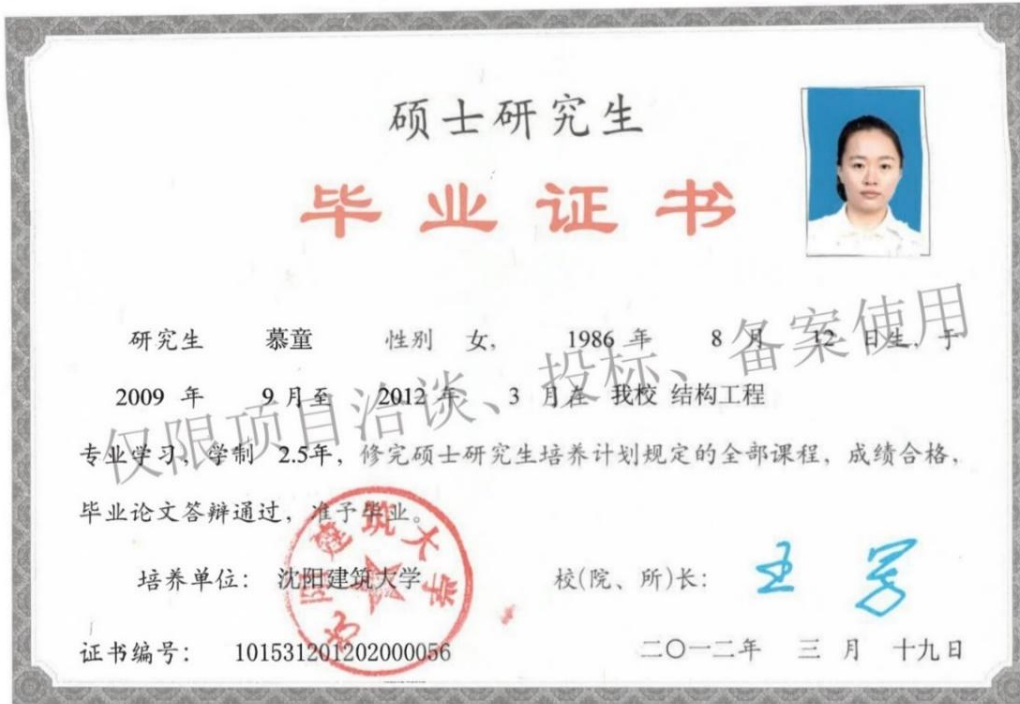 硕士研究生
毕业证书
研究生 慕童 性别 女, 1986 年 8 月 12 日生,于
2009 年 9 月至 2012 年 3 月在 我校 结构工程
专业学习,学制 2.5年,修完硕士研究生培养计划规定的全部课程,成绩合格,
毕业论文答辩通过,准予毕业。
培养单位: 沈阳建筑大学
校(院、所)长:
证书编号: 101531201202000056
二〇一二年 三 月 十九日
沈阳建筑大学
仅限项目洽谈、投标、备案使用